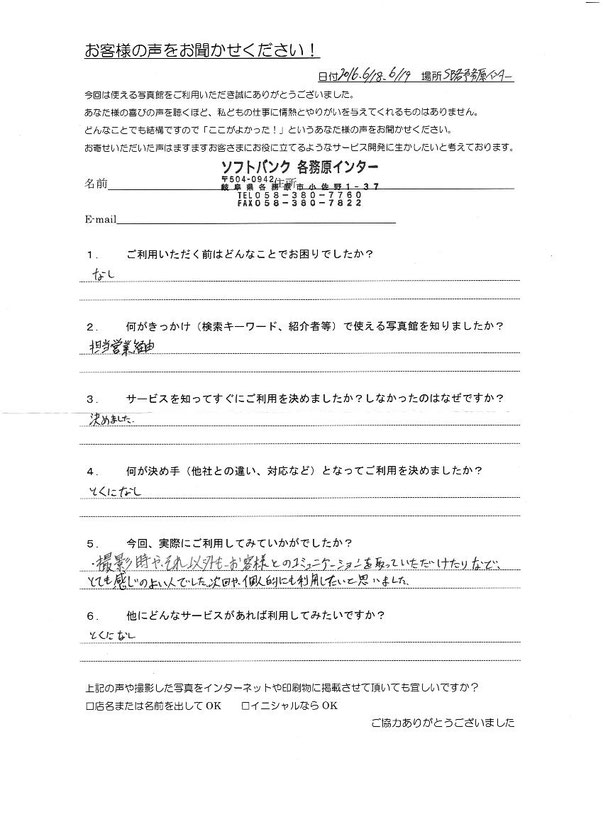 お客様の声をお聞かせください！
日付2016.6/18.6/19 場所SB各務原インター
今回は使える写真館をご利用いただき誠にありがとうございました。
あなた様の喜びの声を聴くほど、私どもの仕事に情熱とやりがいを与えてくれるものはありません。
どんなことでも結構ですので「ここがよかった！」というあなた様の声をお聞かせください。
お寄せいただいた声はますますお客さまにお役に立てるようなサービス開発に生かしたいと考えております。
ソフトバンク 各務原インター
〒504-0942
名前 住所
岐阜県各務原市小佐野1-37
TEL058-380-7760
FAX058-380-7822
E-mail
1． ご利用いただく前はどんなことでお困りでしたか？
なし
2． 何がきっかけ（検索キーワード、紹介者等）で使える写真館を知りましたか？
担当営業経由
3． サービスを知ってすぐにご利用を決めましたか？しなかったのはなぜですか？
決めました.
4． 何が決め手（他社との違い、対応など）となってご利用を決めましたか？
とくになし
5． 今回、実際にご利用してみていかがでしたか？
・撮影時や、それ以外も、お客様とのコミュニケーションを取っていただけたりなど、
とても感じのよい人でした。次回や、個人的にも利用したいと思いました。
6． 他にどんなサービスがあれば利用してみたいですか？
とくになし
上記の声や撮影した写真をインターネットや印刷物に掲載させて頂いても宜しいですか？
□店名または名前を出してOK □イニシャルならOK
ご協力ありがとうございました